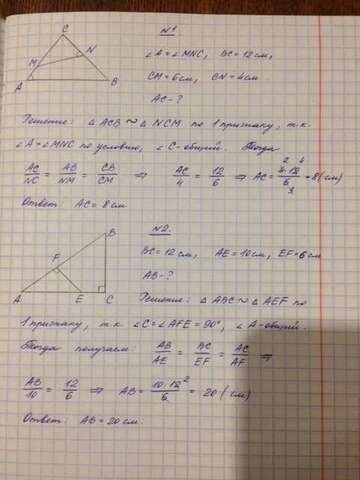 C
M
N
A
B
N1
∠A = ∠MNC, BC = 12 см,
CM = 6 см, CN = 4 см.
AC - ?
Решение: △ACB ~ △NCM по 1 признаку, т.к.
∠A = ∠MNC по условию, ∠C - общий. Тогда
AC/NC = AB/NM = CB/CM ⇒ AC/4 = 12/6 ⇒ AC = 4·12/6 = 8 (см)
Ответ: AC = 8 см
B
F
A
E
C
N2.
BC = 12 см, AE = 10 см, EF = 6 см
AB - ?
Решение: △ABC ~ △AEF по
1 признаку, т.к. ∠C = ∠AFE = 90°, ∠A - общий.
Тогда получаем: AB/AE = BC/EF = AC/AF ⇒
AB/10 = 12/6 ⇒ AB = 10·12/6 = 20 (см)
Ответ: AB = 20 см.